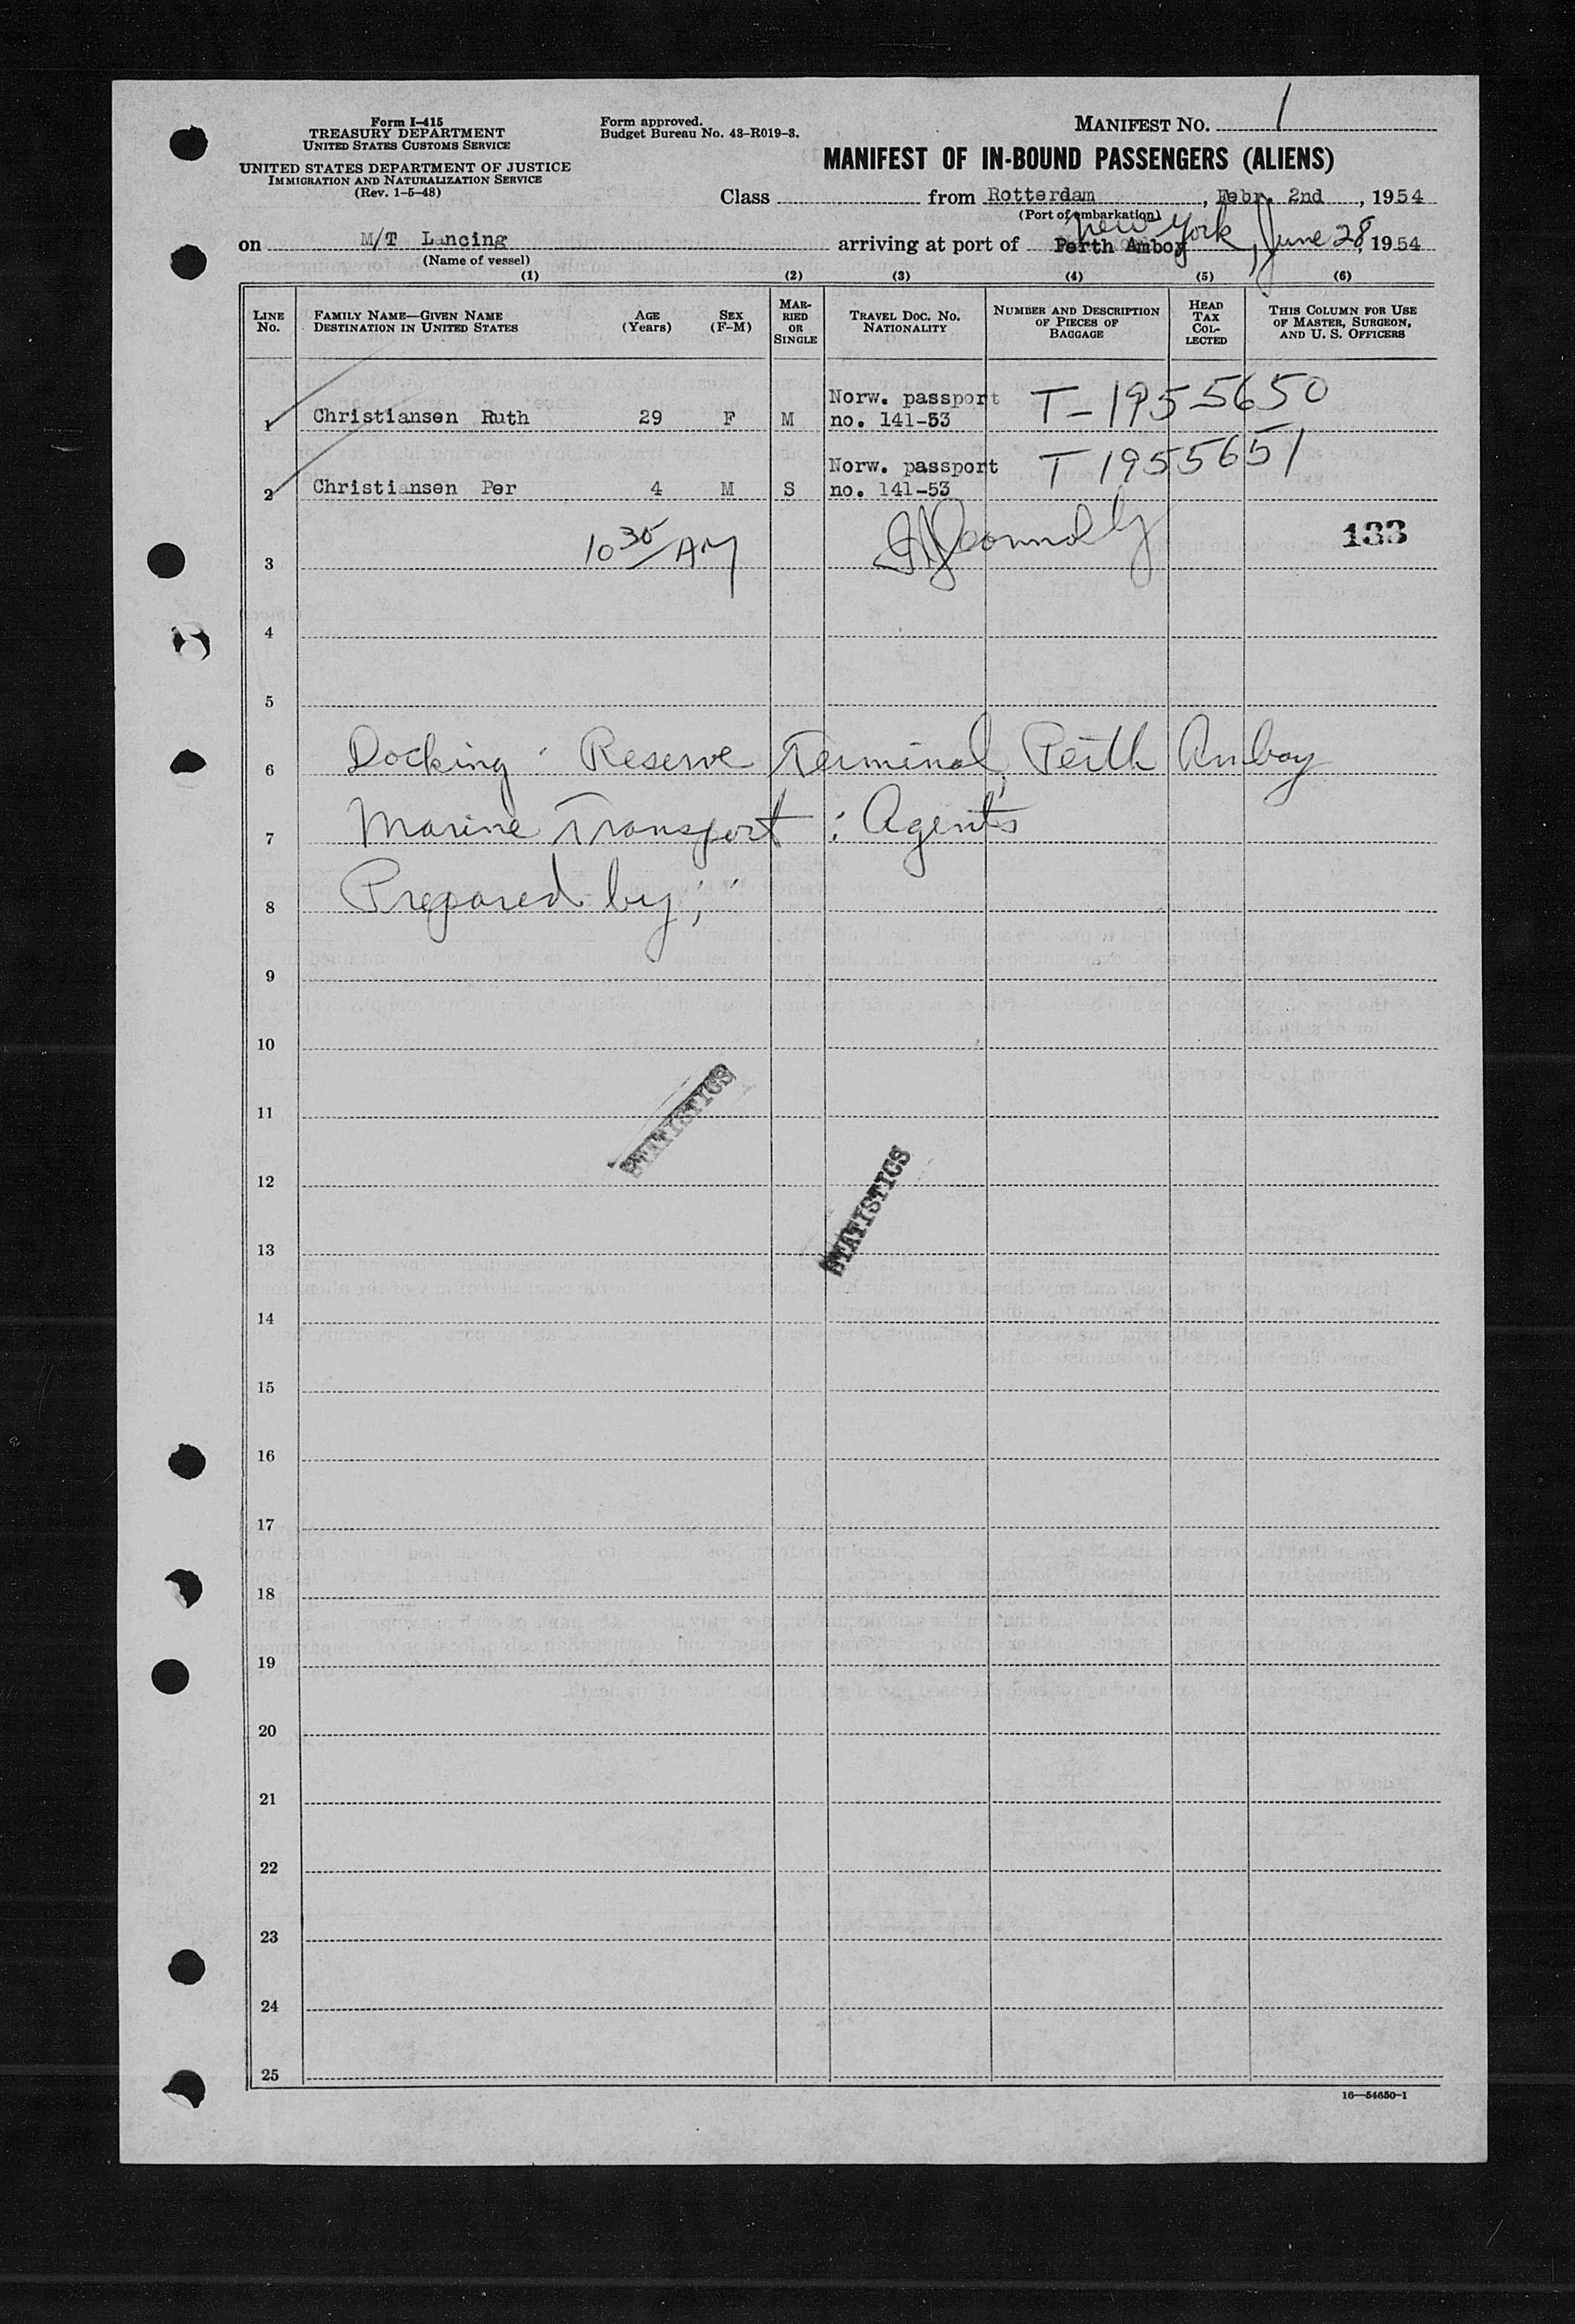 Form I-415
TREASURY DEPARTMENT
UNITED STATES CUSTOMS SERVICE
UNITED STATES DEPARTMENT OF JUSTICE
IMMIGRATION AND NATURALIZATION SERVICE
(Rev. 1-5-48)
Form approved.
Budget Bureau No. 43-R019-3.
MANIFEST NO. 1
MANIFEST OF IN-BOUND PASSENGERS (ALIENS)
Class from Rotterdam, Febr. 2nd, 1954
(Port of embarkation)
New York
on M/T Lancing arriving at port of Perth Amboy, June 28, 1954
(Name of vessel)
(1) (2) (3) (4) (5) (6)
LINE NO. FAMILY NAME—GIVEN NAME DESTINATION IN UNITED STATES AGE (YEARS) SEX (F-M) MARRIED OR SINGLE TRAVEL DOC. NO. NATIONALITY NUMBER AND DESCRIPTION OF PIECES OF BAGGAGE HEAD TAX COLLECTED THIS COLUMN FOR USE OF MASTER, SURGEON, AND U. S. OFFICERS
1 Christiansen Ruth 29 F M Norw. passport no. 141-53 T-1955650
2 Christiansen Per 4 M S Norw. passport no. 141-53 T1955651
3 10 30 AM 133
4
5
6 Docking: Reserve Terminal, Perth Amboy
7 Marine Transport: Agents
8 Prepared by;
9
10
11 STATISTICS
12
13 STATISTICS
14
15
16
17
18
19
20
21
22
23
24
25
16—54650-1